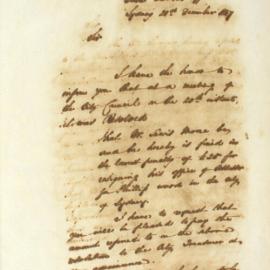 Sydney 22nd December 184
Sir
I have the honor to
inform you that at a meeting of
the City Council on the 20th instant,
it was Resolved
That Mr Lewis Moore be,
and he hereby is fined in
the lowest penalty of £25 for
resigning his office of
for Phillip ward in the City
of Sydney.
I have to request that
you will be pleased to pay the
amount referred to in the above
resolution to the City Treasurer at
your